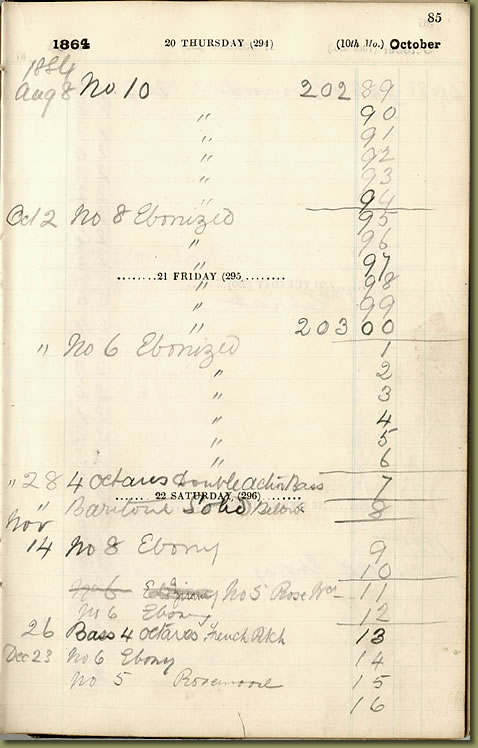 85
1864 20 THURSDAY (294) (10th Mo.) October
1884
Aug 8 No. 10 202 89
" 90
" 91
" 92
" 93
" 94
Oct 12 No 8 Ebonized 95
" 96
" 97
21 FRIDAY (295
" 98
" 99
" 203 00
" No 6 Ebonized 1
" 2
" 3
" 4
" 5
" 6
" 28 4 octaves Double action Bass 7
22 SATURDAY (296)
" Baritone Solo 8
Nov
14 No 8 Ebony 9
" 10
No 6 No 5 Rose Wd 11
No 6 Ebony 12
26 Bass 4 octaves French Ptch 13
Dec 23 No 6 Ebony 14
No 5 Rosewood 15
16